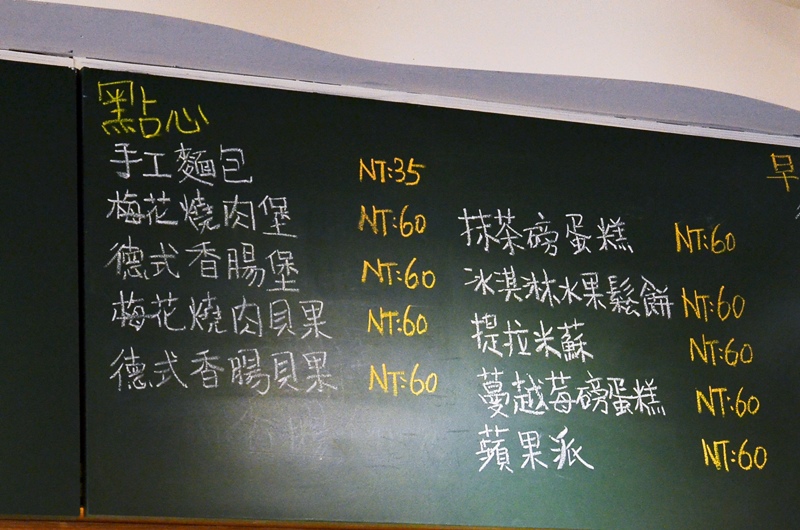 點心
手工麵包 NT:35
梅花燒肉堡 NT:60
德式香腸堡 NT:60
梅花燒肉貝果 NT:60
德式香腸貝果 NT:60
抹茶磅蛋糕 NT:60
冰淇淋水果鬆餅 NT:60
提拉米蘇 NT:60
蔓越莓磅蛋糕 NT:60
蘋果派 NT:60
早